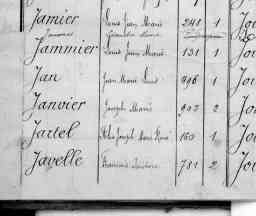 Jamier Louis Jean Marie 241 1 Jou
Jammier Louis Jean Marie 131 1 Jou
Jan Jean Marie Louis 996 1 Jou
Janvier Joseph Marie 903 2 Jou
Jartel Joseph Marie René 160 1 Jou
Javelle François 751 2 Jou